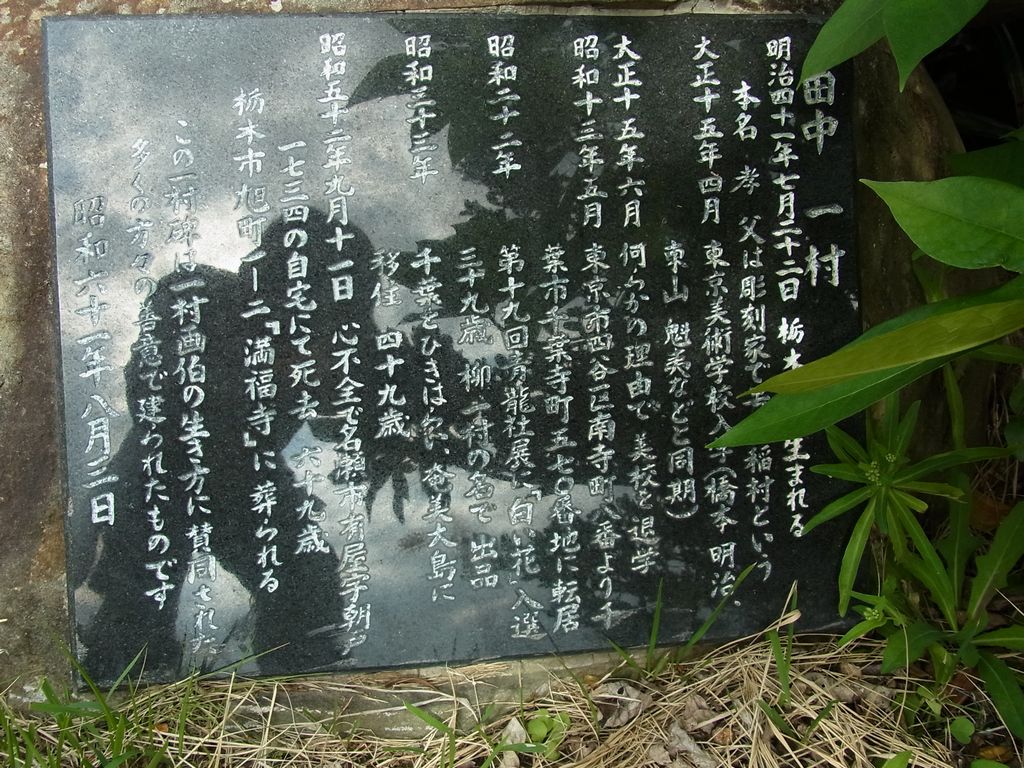 田中 一村
明治四十一年七月二十二日 栃木 生まれる
本名 孝 父は彫刻家で 稲村という
大正十五年四月 東京美術学校入学(橋本明治、
東山 魁夷などと同期)
大正十五年六月 何らかの理由で 美校を退学
昭和十三年五月 東京市四谷区南寺町八番より千
葉市千葉寺町五七〇番地に転居
昭和二十二年 第十九回青龍社展に「白い花」入選
三十九歳 柳一村の名で 出品
昭和三十三年 千葉をひきはらい、奄美大島に
移住 四十九歳
昭和五十二年九月十一日 心不全で名瀬市有屋字朝戸
一七三四の自宅にて死去 六十九歳
栃木市旭町一一ー二「満福寺」に葬られる
この一村碑は一村画伯の生き方に賛同された
多くの方々の善意で建われたものです
昭和六十一年八月二日